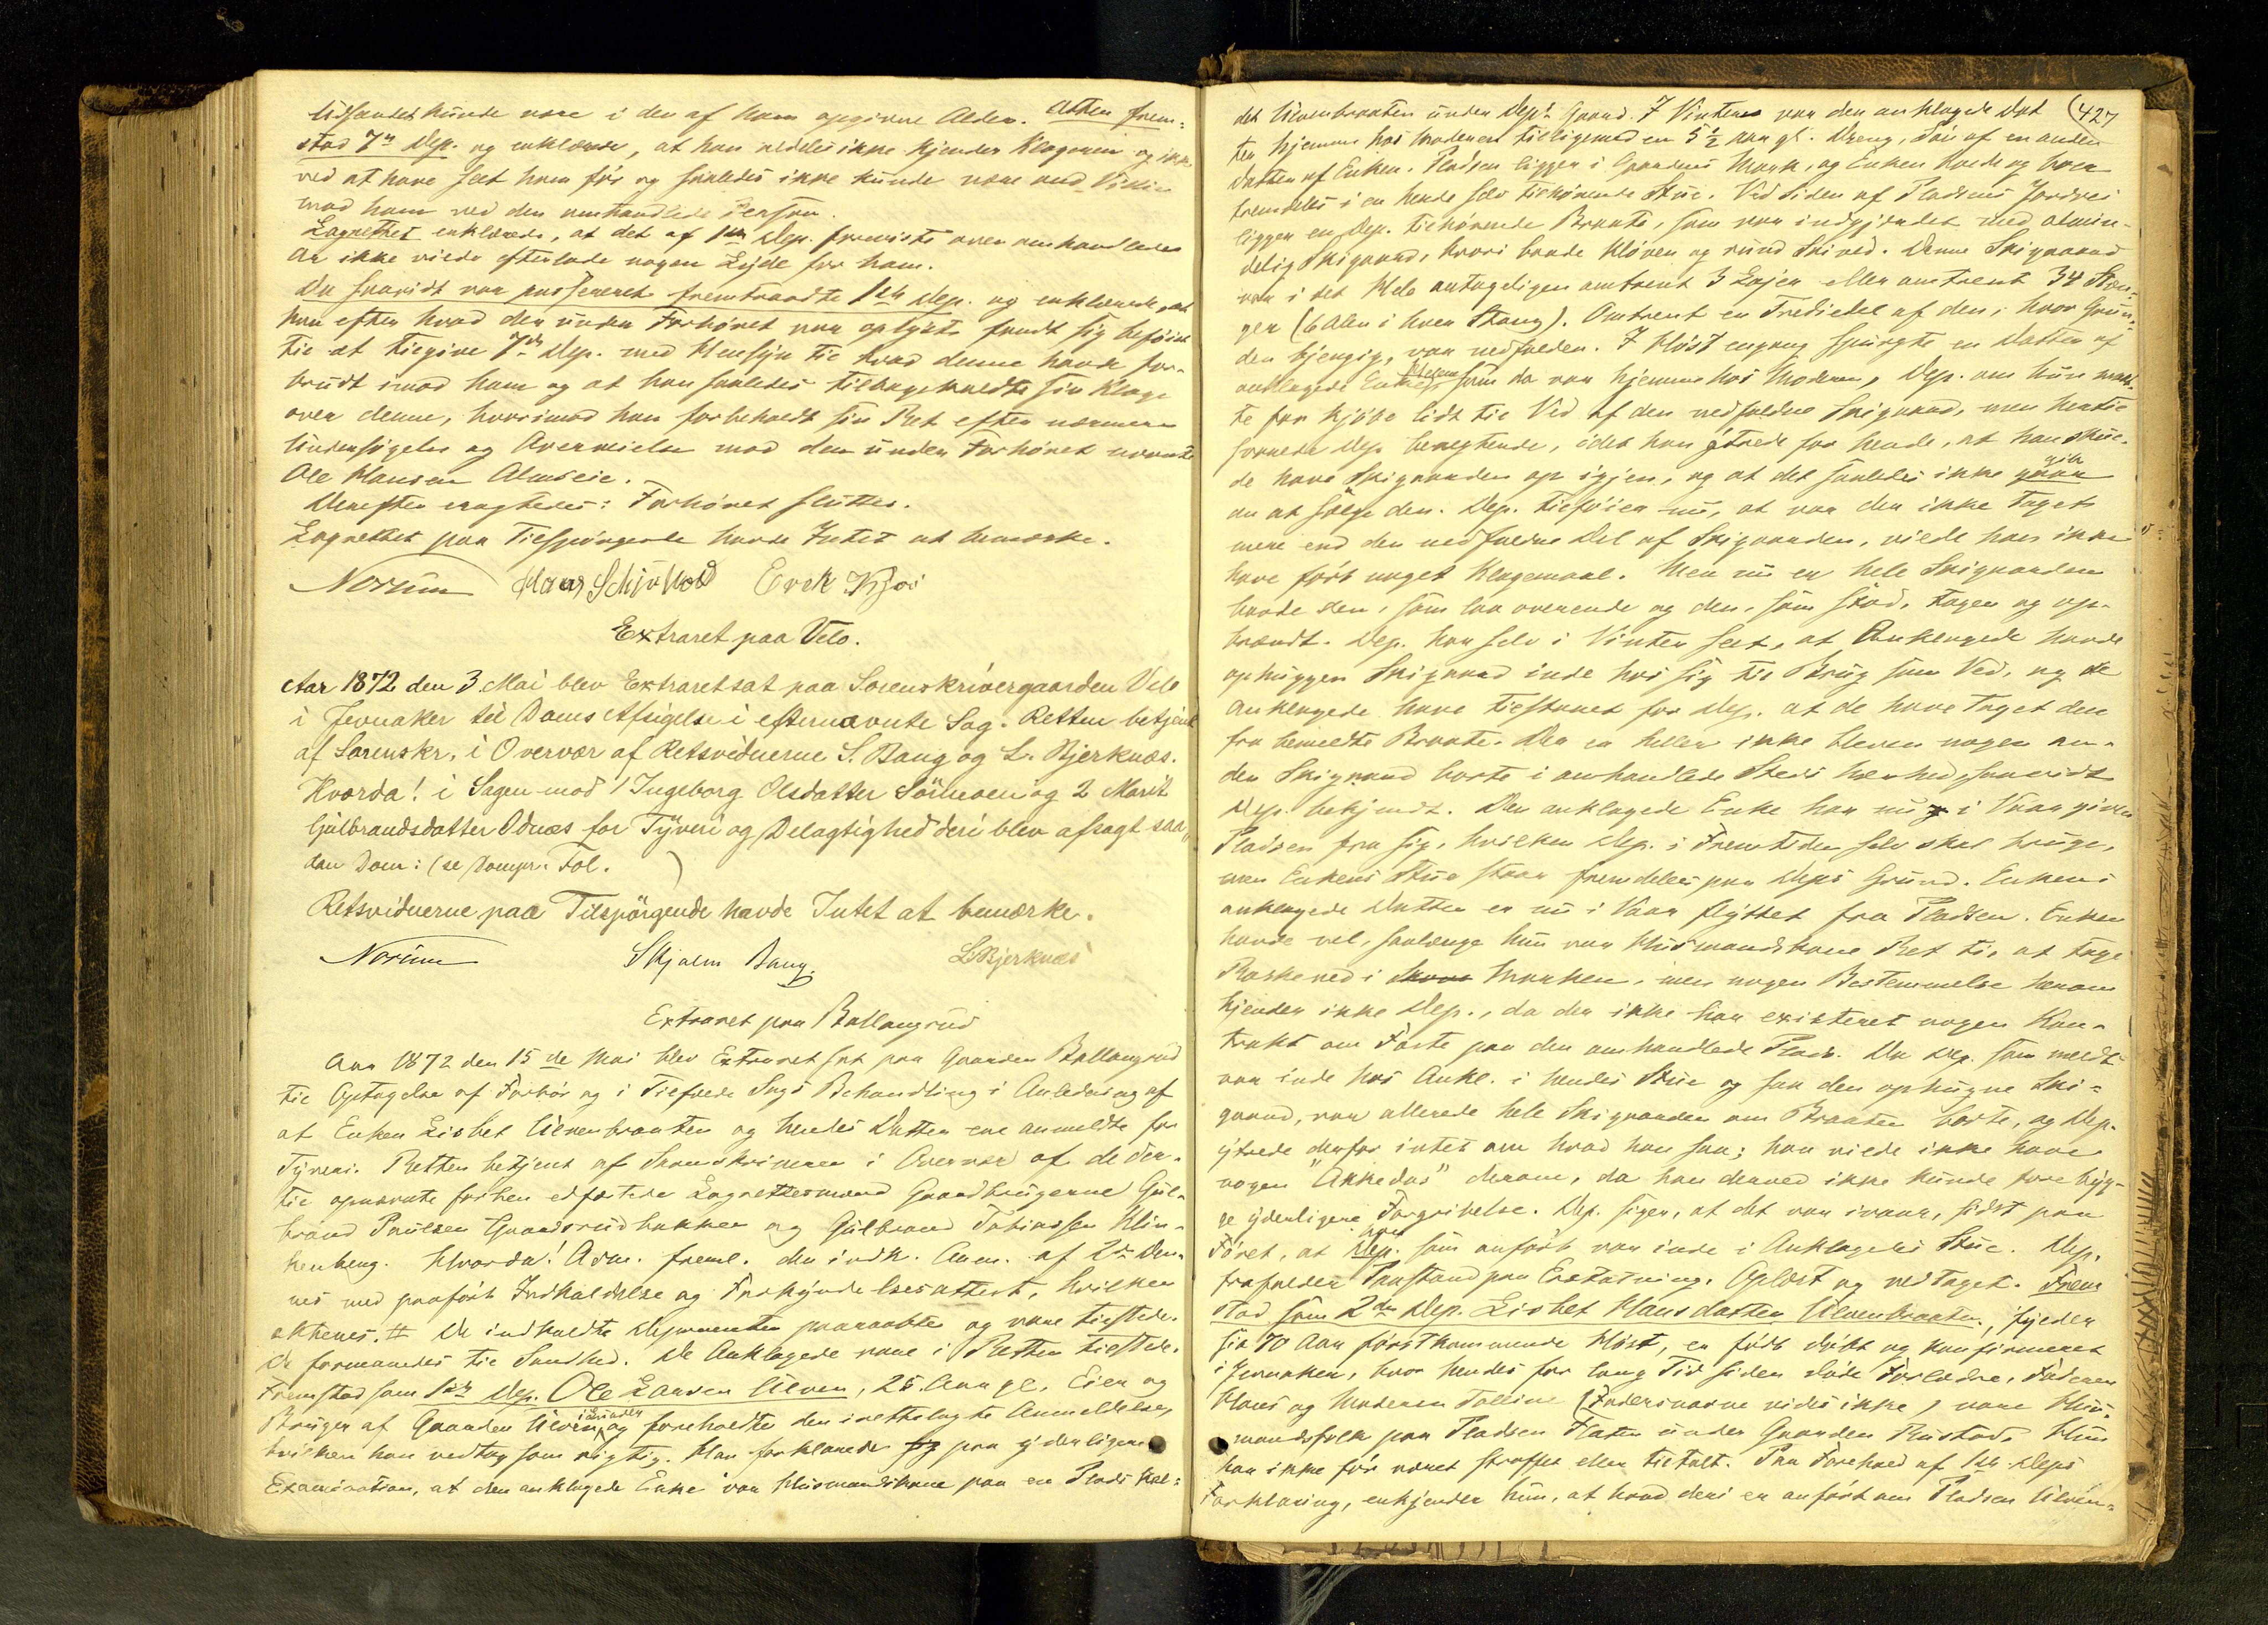 Udseendet kunde være i den af ham opgivne Alder. Atter frem-
stod 7de Dep. og erklærede, at han aldeles ikke kjender Klageren og ikke
ved at have seet ham før og saaledes ikke kunde være ond Villie
mod ham ved den omhandlede Person.
Lagrettet erklærede, at det af 1ste Dep. foreviste over omhandlede
Ar ikke vilde efterlade nogen Lyde for ham.
Da saavidt var passeret fremtraadte 1ste Dep. og erklærede, at
han efter hvad der under Forhøret var oplyst fandt sig beføiet
til at tilgive 7de Dep. med Hensyn til hvad denne havde for-
brudt imod ham og at han saaledes tilbagekaldte sin Klage
over denne, hvorimod han forbeholdt sin Ret efter nærmere
Undersøgelse og Overveielse mod den under Forhøret nævnte
Ole Hansen Almseie.
Derefter eragtedes: Forhøret sluttes.
Lagrettet paa Tilspørgende havde Intet at bemærke.
Norum Hans Schjøllod Erek Kjøs
Extraret paa Velo.
Aar 1872 den 3 Mai blev Extraret sat paa Sorenskrivergaarden Velo
i Jevnaker til Doms Afsigelse i efternævnte Sag. Retten betjent
af Sorenskr. i Overvær af Retsvidnerne S. Bang og L. Bjerknæs.
Hvorda! i Sagen mod 1 Ingeborg Olsdatter Sörumeng og 2 Marit
Gulbrandsdatter Odnæs for Tyveri og Delagtighed deri blev afsagt saa-
dan Dom: (se Dompr. Fol. )
Retsvidnerne paa Tilspörgende havde Intet at bemærke.
Norum Skjalm Bang. L Bjerknæs
Extraret paa Ballangrud
Aar 1872 den 15de Mai blev Extraret sat paa Gaarden Ballangrud
til Optagelse af Forhør og i Tilfælde Sags Behandling i Anledning af
at Enken Lisbet Ulvenbraaten og hendes Datter ere anmeldte for
Tyveri. Retten betjent af Sorenskriveren i Overvær af de der-
til opnævnte forhen edfæstede Lagrettesmænd Gaardbrugerne Gul-
brand Paulsen Gaardsrudbakken og Gulbrand Tobiassen Klin-
kenberg. Hvorda! Adm. freml. den indk. Anm. af 2den den-
nes med paaført Indkaldelse og Forkyndelsesattest, hvilken
aktheves. # De indkaldte Deponenter paaraabtes og vare tilstede.
De formanedes til Sandhed. De Anklagede vare i Retten tilstede.
Fremstod som 1ste Dep. Ole Larsen Ulven, 25 Aar gl. Eier og
Bruger af Gaarden Ulven i Lunder og foreholdte den irettelagte Anmeldelse,
hvilken han vedtog som rigtig. Han forklarede paa yderligere
Examination, at den anklagede Enke var Husmandskone paa en Plads kal-
427
det Ulvenbraaten under Depts Gaard. I Vinter var den anklagede Dat
ter hjemme hos Moderen tilligemed en 5½ Aar gl. Dreng, Søn af en anden
Datter af Enken. Pladsen ligger i Gaardens Mark, og Enken havde og boer
fremdeles i en hende selv tilhørende Stue. Ved Siden af Pladsens Jordvei
ligger en Dep. tilhørende Braate, som var indgjerdet med almin-
delig Skigaard, hvori baade kløven og rund Skived. Denne Skigaard
var i det Hele antageligen omtrent 3 Læjer eller omtrent 34 Stæn-
ger (6 Alen i hver Stang). Omtrent en Trediedel af den, hvor Grun-
den hjengig, var nedfalden. I Høst engang spurgte en Datter af
anklagede Enke, som da var hjemme hos Moderen, Dep. om hun maat-
te faa kjøbe lidt til Ved af den nedfaldne Skigaard, men hertil
svarede Dep. benegtende, idet han ytrede for hende, at han skul-
de have Skigaarden op igjen, og at det saaledes ikke gik
an at sælge den. Dep. tilføier nu, at var der ikke taget
mere end den nedfaldne Del af Skigaarden, vilde han ikke
have ført noget Klagemaal. Men nu er hele Skigaarden
baade den, som laa overende og den, som stod, tagen og op-
brændt. Dep. har selv i Vinter seet, at Anklagede havde
ophuggen Skigaard inde hos sig til Brug som Ved, og de
anklagede have tilstaaet for Dep. at de have taget den
fra bemeldte Braate. Der er heller ikke bleven nogen an-
den Skigaard borte i omhandlede Steds Nærhed, saavidt
Dep. bekjendt. Den anklagede Enke har nu i Vaar given
Pladsen fra sig, hvilken Dep. i Fremtiden selv skal bruge,
men Enkens Stue staar fremdeles paa Deps Grund. Enkens
anklagede Datter er nu i Vaar flyttet fra Pladsen. Enken
havde vel, saalænge hun var Husmandskone Ret til at tage
Raskeved i Marken, men nogen Bestemmelse herom
kjender ikke Dep., da der ikke har existeret nogen Kon-
trakt om Fæste paa den omhandlede Plads. Da Dep. som meldt
var inde hos Ankl. i hendes Stue og saa den ophugne Ski-
gaard, var allerede hele Skigaarden om Braaten borte, og Dep.
ytrede derfor intet om hvad han saa; han vilde ikke have
nogen "Akkedas" derom, da han derved ikke kunde forebyg-
ge yderligere Forgribelse. Dep. siger, at det var ivaar, sidst paa
Føret, at han som anført var inde i Anklagedes Stue. Dep.
frafalder Paastand paa Erstatning. Oplæst og vedtaget. Frem
stod som 2den Dep. Lisbet Hansdatter Ulvenbraaten, fylder
sit 70 Aar førstkommende Høst, er født døbt og konfirmeret
i Jevnaker, hvor hendes for lang Tid siden døde Forældre, Faderen
Hans og Moderen Tolline (Fadersnavne vides ikke) vare Hus-
mandsfolk paa Pladsen Flaten under Gaarden Rustad. Hun
har ikke før været straffet eller tiltalt. Paa Forehold af 1ste Deps
Forklaring, erkjender hun, at hvad deri er anført om Pladsen Ulven-